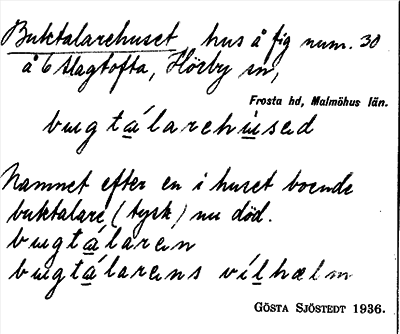 Buktalarehuset, hus å fig num. 30
å 6 Slagtofta, Hörby sn,
Frosta hd, Malmöhus län.
bugtálarehúsed
Namnet efter en i huset boende
buktalare (tysk) nu död.
bugtálaren
bugtálarens vílhælm
GÖSTA SJÖSTEDT 1936.